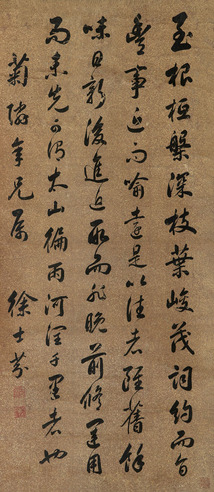 至根柢槃深枝葉峻茂詞約而旨
豐事近而喻遠是以往者雖舊餘
味日新後進追取而非晚前修運用
而未先可謂太山徧雨河潤千里者也
菊隣年兄屬 徐士芬